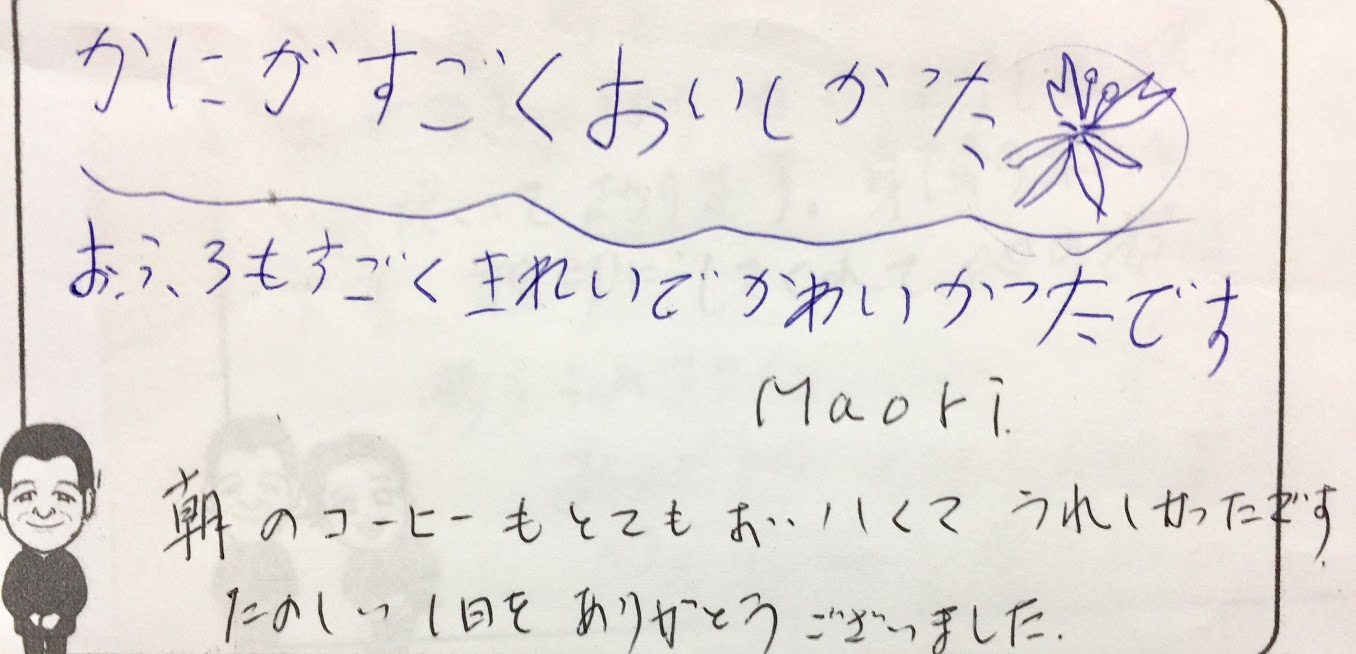 かにがすごくおいしかった
おふろもすごくきれいでかわいかったです
Maori.
朝のコーヒーもとてもおいしくて うれしかったです
たのしい1日をありがとうございました.